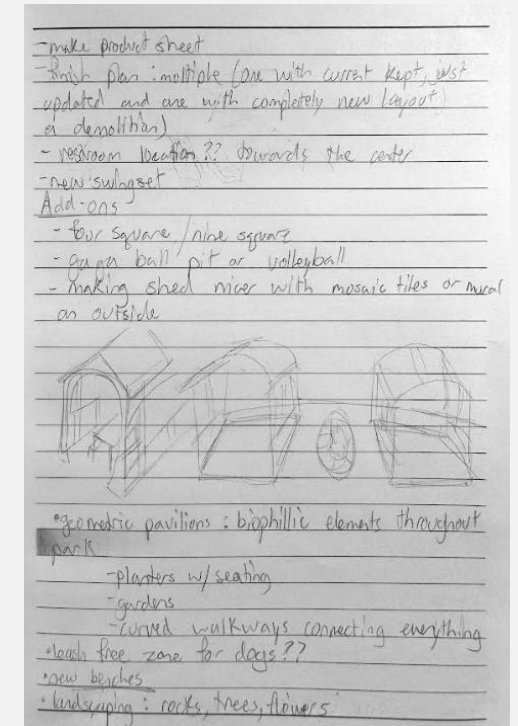 -make product sheet
-finish plan : multiple (one with current kept, just
updated and one with completely new layout
a demolition)
- restroom location?? towards the center
-new swingset
Add-ons
- four square/nine square
- gaga ball pit or volleyball
- making shed nicer with mosaic tiles or mural
on outside
•geometric pavilions : biophillic elements throughout
park
-planters w/ seating
-gardens
-curved walkways connecting everything
•leash free zone for dogs??
•new benches
•landscaping : rocks, trees, flowers